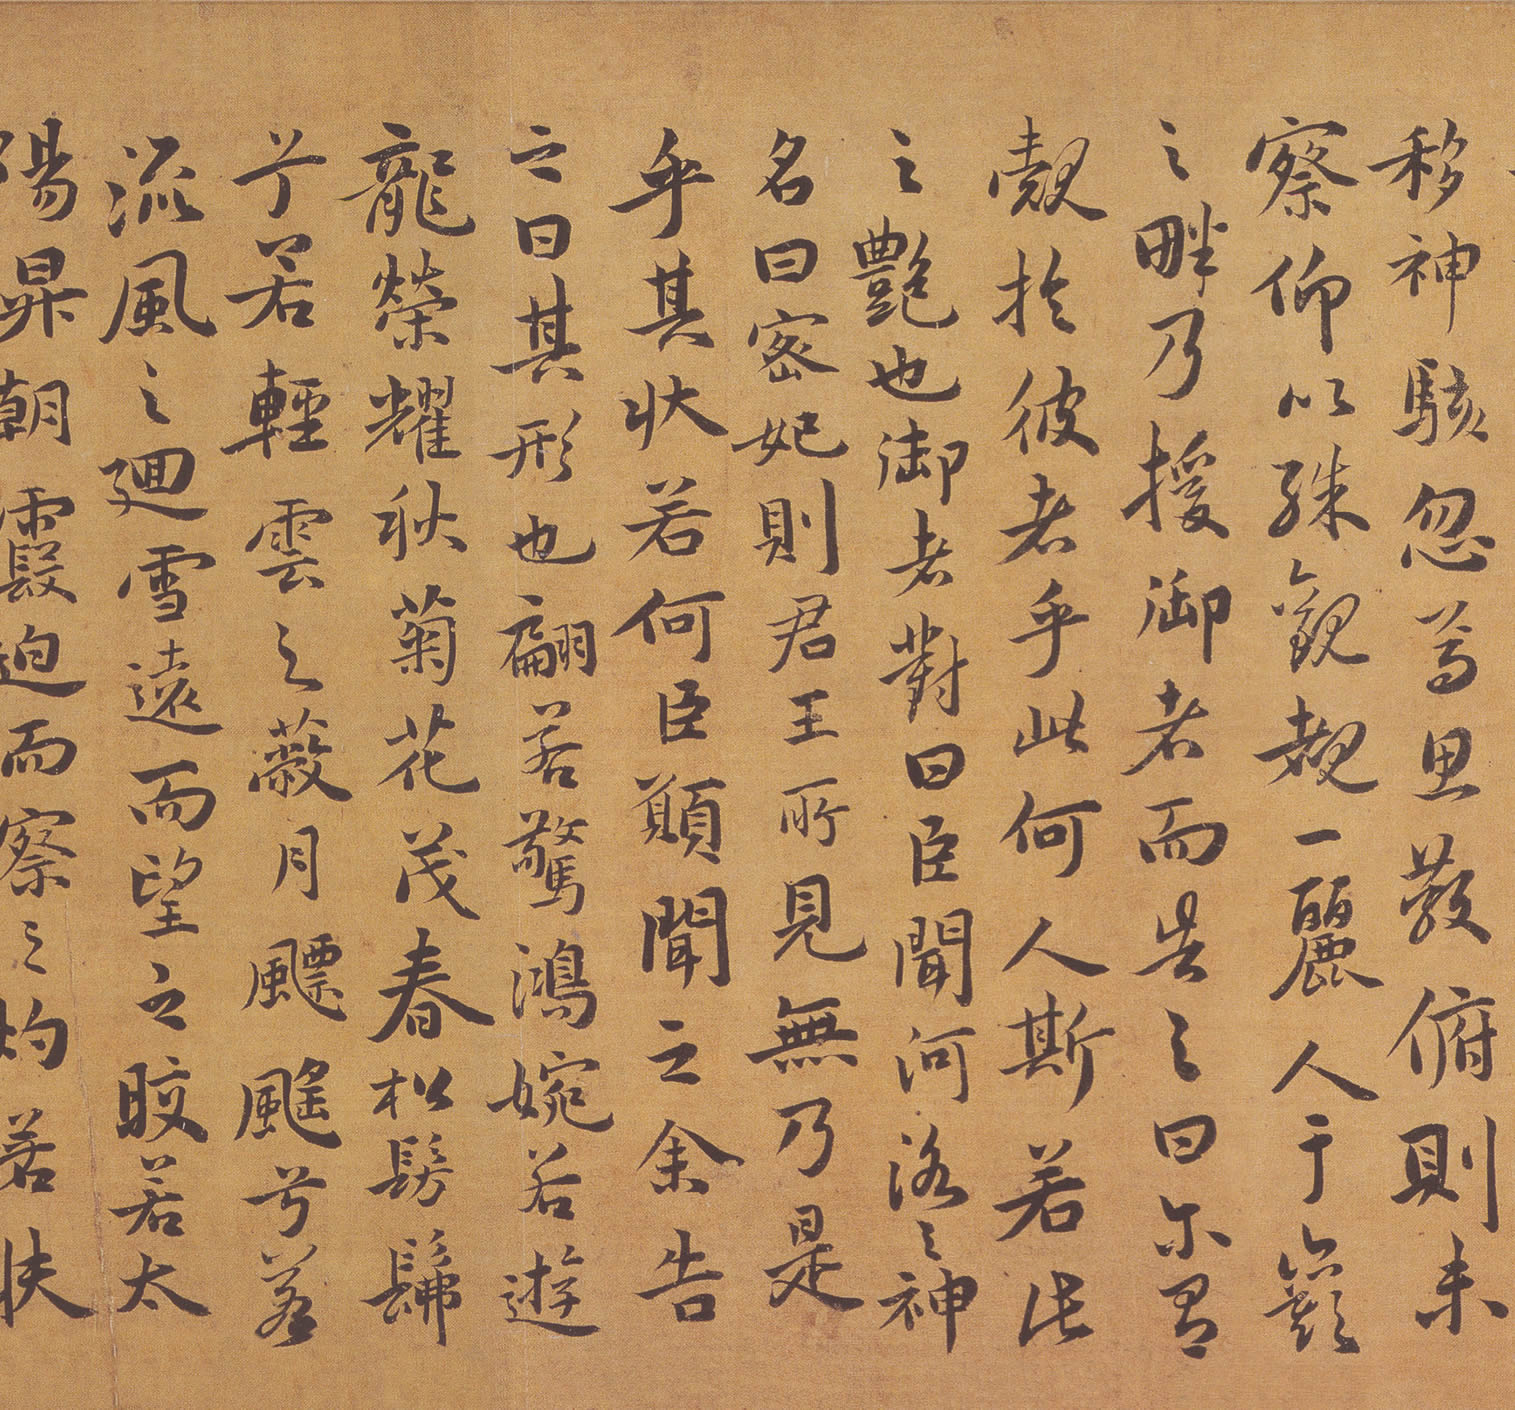 移神駭忽焉思散俯則未
察仰以殊觀覩一麗人于巖
之畔乃援御者而告之曰尔有
覿於彼者乎此何人斯若此
之艷也御者對曰臣聞河洛之神
名曰宓妃則君王所見無乃是
乎其状若何臣願聞之余告
之曰其形也翩若驚鴻婉若遊
龍榮耀秋菊花茂春松髣髴
兮若輕雲之蔽月飄颻兮若
流風之迴雪遠而望之皎若太
陽昇朝霞迫而察之灼若